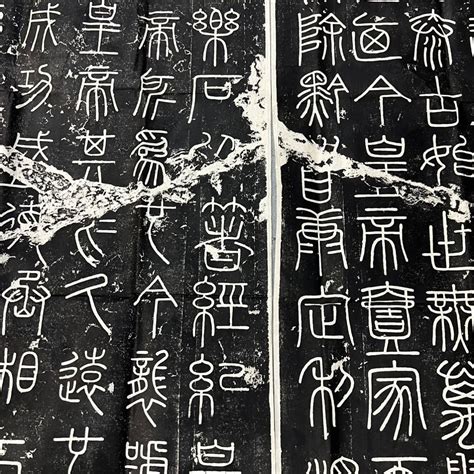 泰古始世無萬
廼今皇帝壹家
除黔首康定利
樂石以著經紀皇
帝所為也今襲號
皇帝其於久遠也
成功盛德丞相